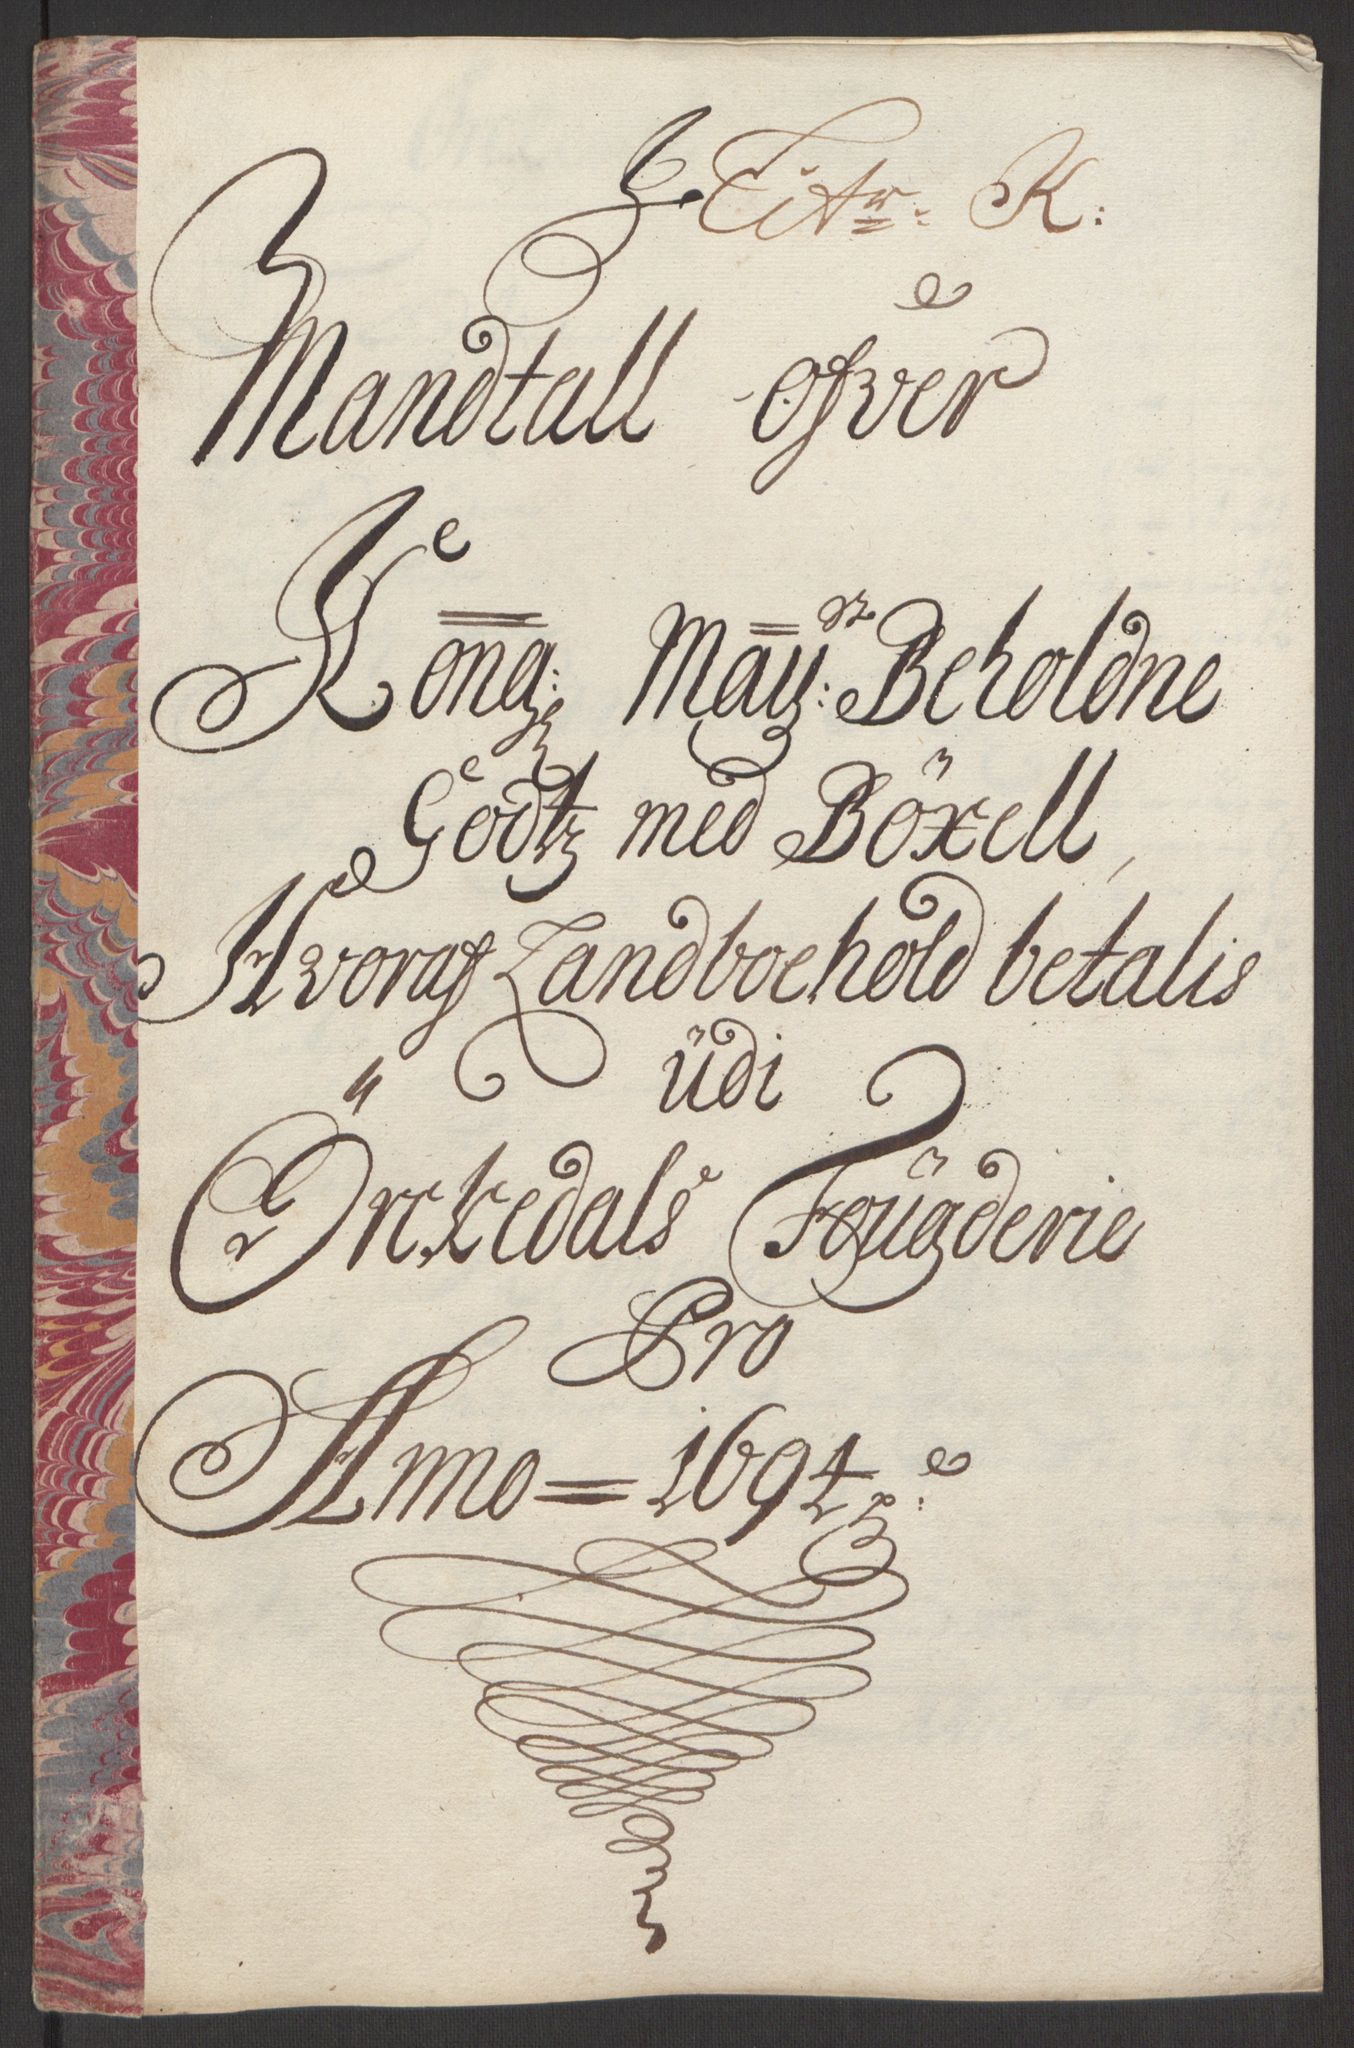 Litr. K:
Mandtall ofver
Kong: May:st Beholdne
Godtz med Böxell,
Hvoraf Landboehold betalis
üdi
Örckedals Foügderie
Pro
Anno = 1694